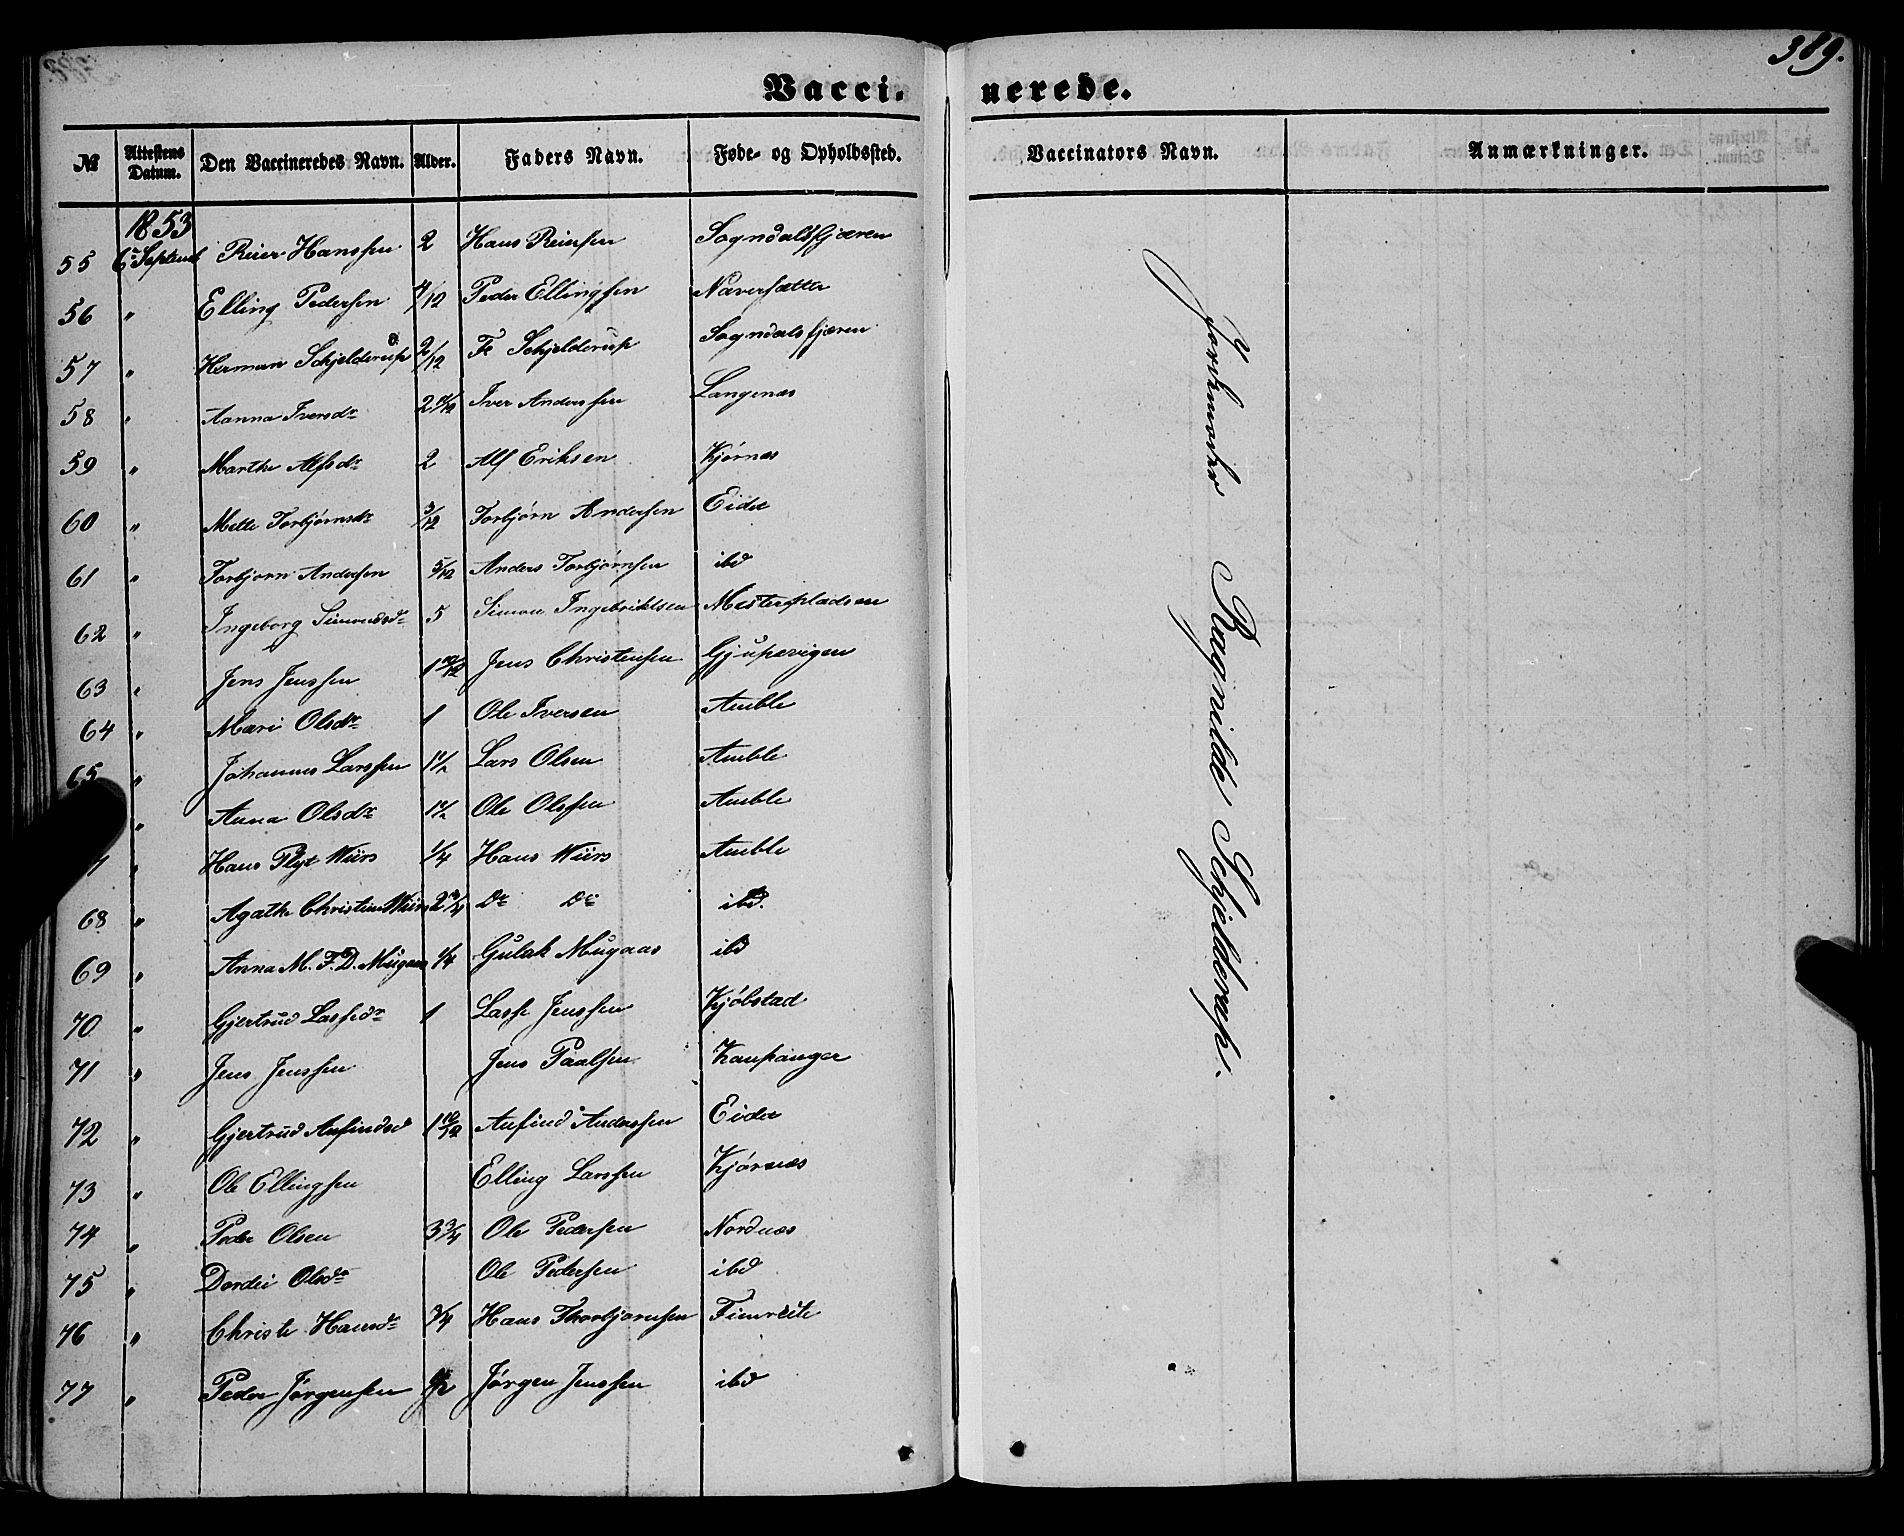 389.
Vacci- nerede.
№ Attestens Datum. Den Vaccineredes Navn. Alder. Faders Navn. Føde- og Opholdssted. Vaccinators Navn. Anmærkninger.
1853
55 6 Septemb Reier Hanssen 2 Hans Reiersen Sogndalsfjæren
56 " Elling Pedersen 7/12 Peder Ellingsen Næversætter
57 " Herman Schjelderup 2/12 Fr Schjelderup Sogndalsfjæren
58 " Aanna Iversdr 2 Iver Anderssen Langenæs
59 " Marthe Alfsdr 2 Alf Eriksen Kjørnæs
60 " Mette Torbjørnsdr 3/12 Torbjørn Andersen Eide
61 " Torbjørn Andersen 5/12 Anders Torbjørnsen ibd
62 " Ingeborg Simonsdr 5 Simon Ingebriktsen Mesterpladsen
63 " Jens Jenssen 1 10/12 Jens Christensen
64 " Mari Olsdr 1 Ole Iversen Amble
65 " Johannes Larssen 1 1/2 Lars Olsen Amble
" Anna Olsdr 1 1/2 Ole Olssen Amble
7 " Hans Plyt Wiirs 1/4 Hans Wiirs Amble
68 " Agathe Christine Wiirs 2 3/4 Do Do ibd.
69 " Anna M. F. D. Mugaas 1/4 Gulak Mugaas ibd
70 " Gjertrud Lassedr 1 Lasse Jenssen Kjøbstad
71 " Jens Jenssen Jens Paalsen Kaupanger
72 " Gjertrud Anfindsd 1 10/12 Anfind Anderssen Eide
73 " Ole Ellingsen Elling Larssen Kjørnæs
74 " Peder Olsen 3 3/4 Ole Pedersen Nordnæs
75 " Dordei Olsdr Ole Pedersen ibd
76 " Christi Hansdr 3/4 Hans Thorbjørnsen Fimreite
77 " Peder Jørgensen 1/2 Jørgen Jenssen ibd
Jordemoder Ragnilde Schjelderup.